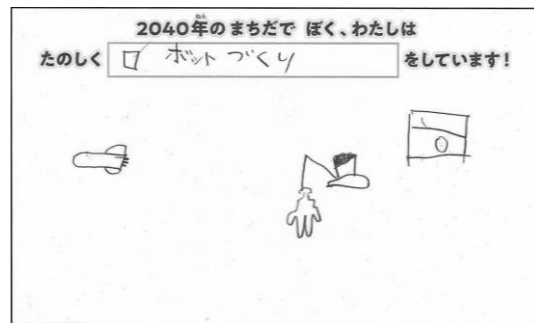 2040年のまちだで ぼく、わたしは
たのしく ロボットづくり をしています!